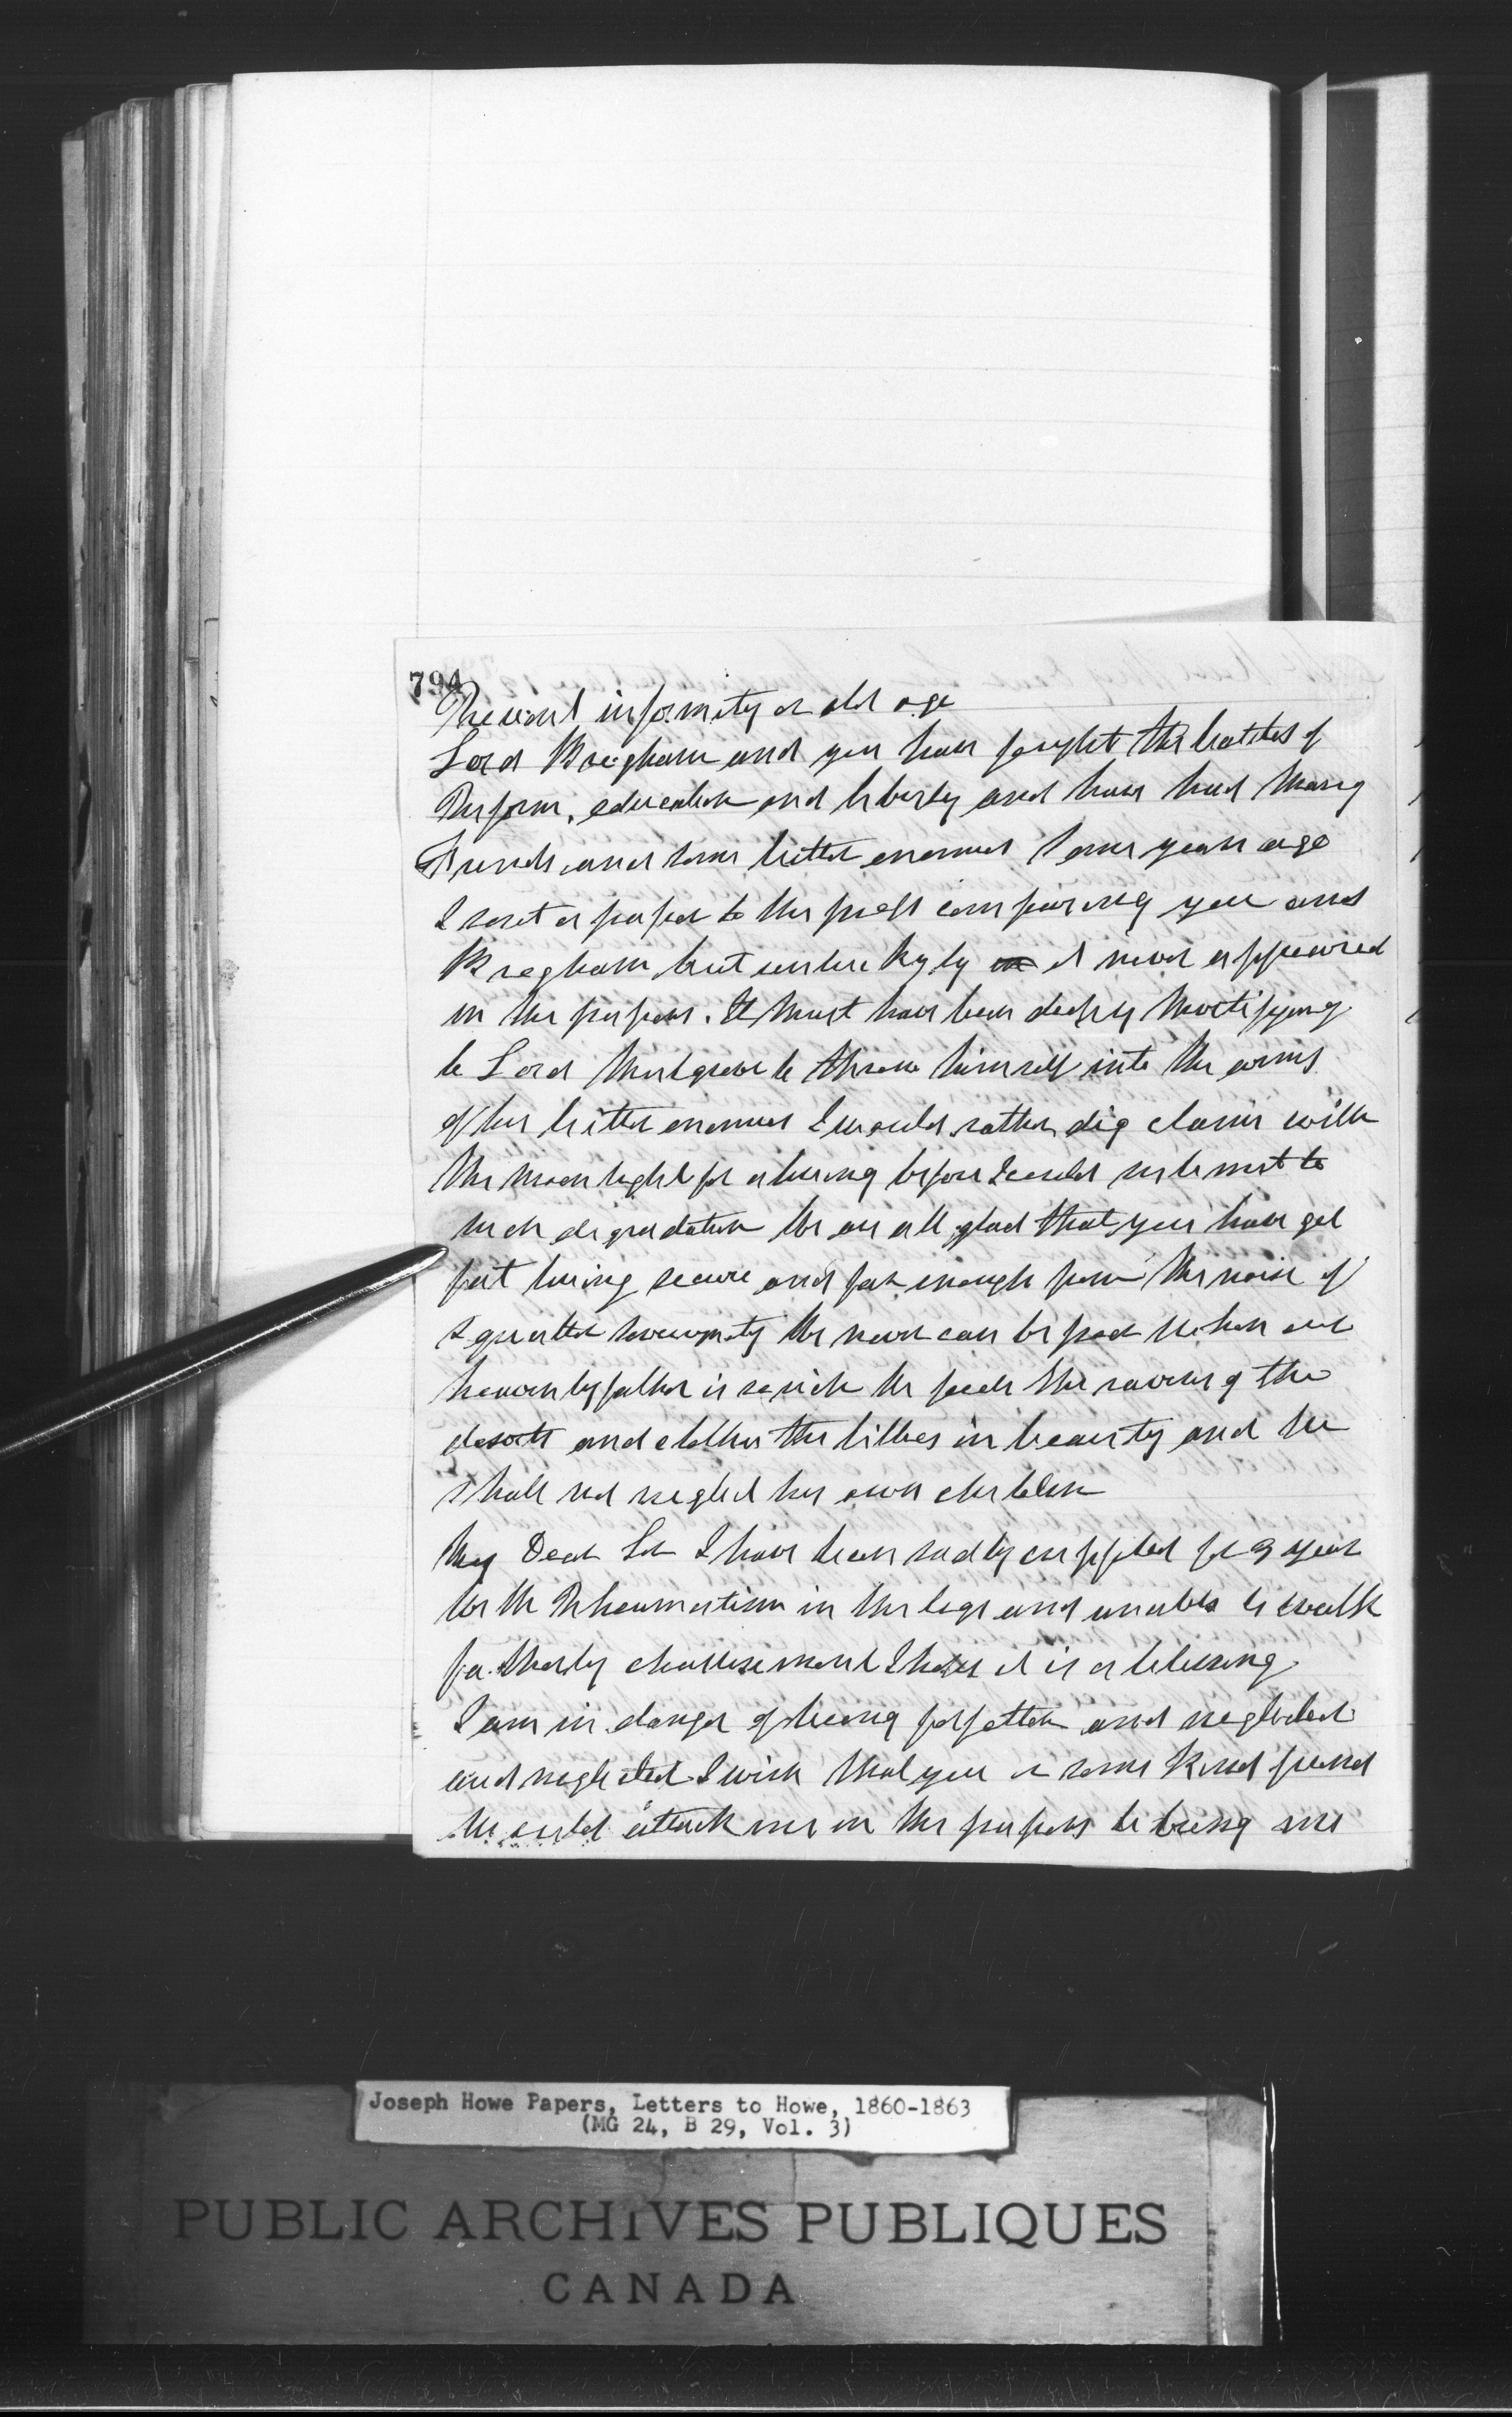 794
Prevent infirmity or old age
Lord Brougham and you have fought the battles of
Reform, education and liberty and have had many
Friends and some bitter enemies Some years ago
I sent a paper to the press comparing you and
Brogham but unluckyly it never appeared
in the papers. It must have been deeply mortifying
to Lord Mulgrave to throw himself into the arms
of his bitter enemies I would rather dig clams with
the moon light for a living before I could submit to
such degradation We are all glad that you have got
fat living secure and far enough from the noise of
squatter sovereignty We never can be poor when our
heavenly father is so rich He feeds the ravens of the
deserts and clothes the lillies in beauty and he
shall not neglect his own children
My Dear Sir I have been sadly crippled for 3 years
With Rheumatism in the legs and unable to walk
fatherly chastisement I hope it is a blessing
I am in danger of being forgotten and neglected
and neglected I wish that you or some kind friend
would attack me in the papers to bring me
Joseph Howe Papers, Letters to Howe, 1860-1863
(MG 24, B 29, Vol. 3)
PUBLIC ARCHIVES PUBLIQUES
CANADA